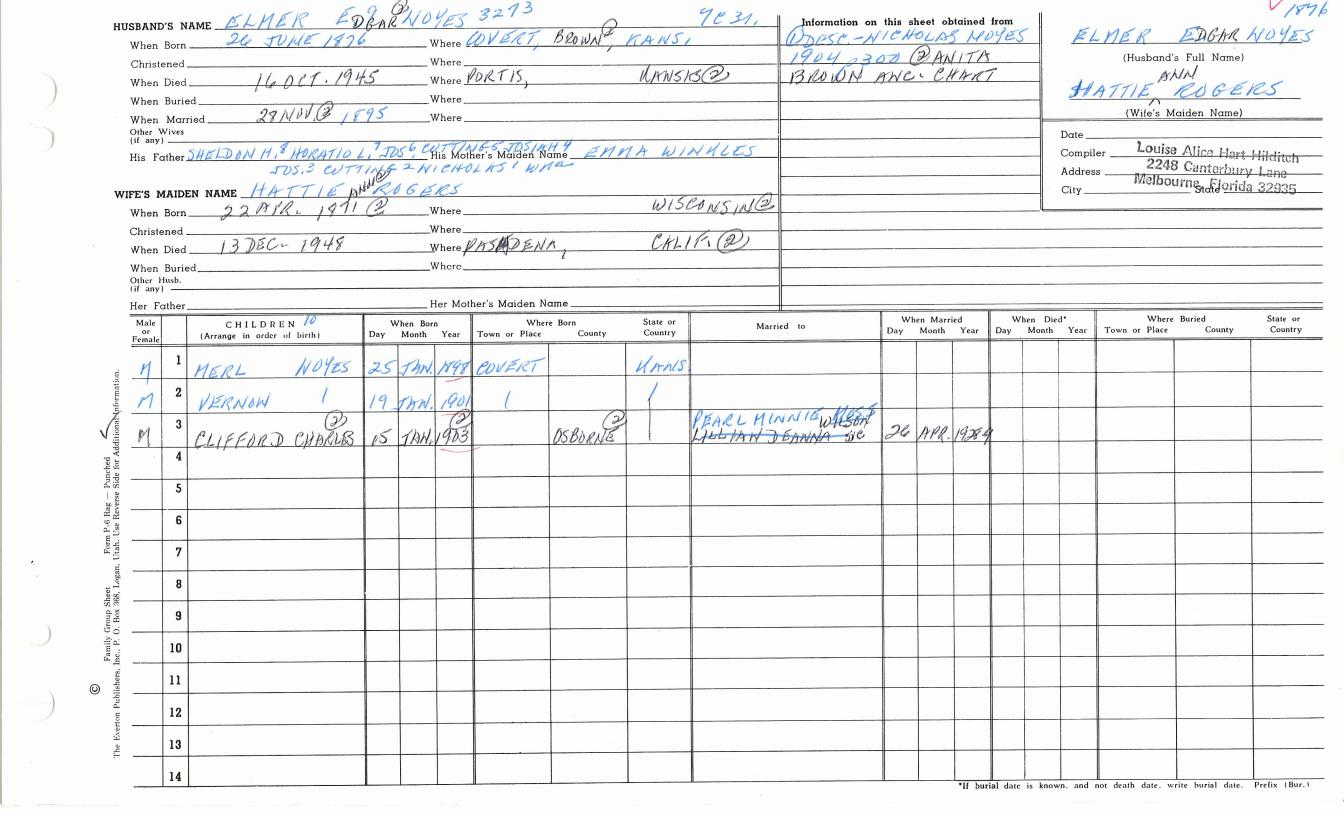 1896
HUSBAND'S NAME ELMER EDGAR② NOYES 3273 9C31.
When Born 26 JUNE 1876 Where COVERT, BROWN②, KANS.
Christened Where
When Died 16 OCT. 1945 Where PORTIS, KANSIS②
When Buried Where
When Married 28 NOV.② 1895 Where
Other Wives
(if any)
His Father SHELDON H.8 HORATIO L.7 JOS6 CUTTING5 JOSIAH4 His Mother's Maiden Name EMMA WINKLES
JOS.3 CUTTING2 NICHOLAS1 WMa
WIFE'S MAIDEN NAME HATTIE ANN② ROGERS
When Born 22 APR. 1871② Where WISCONSIN②
Christened Where
When Died 13 DEC. 1948 Where PASADENA, CALIF.②
When Buried Where
Other Husb.
(if any)
Her Father Her Mother's Maiden Name
Information on this sheet obtained from
①DESC-NICHOLAS NOYES
1904 p302 ②ANITA
BROWN ANC. CHART
ELMER EDGAR NOYES
(Husband's Full Name)
ANN
HATTIE ROGERS
(Wife's Maiden Name)
Date
Compiler Louise Alice Hart Hilditch
Address 2248 Canterbury Lane
City State Melbourne, Florida 32935
Male or Female CHILDREN 10 (Arrange in order of birth) When Born Day Month Year Where Born Town or Place County State or Country Married to When Married Day Month Year When Died* Day Month Year Where Buried Town or Place County State or Country
M 1 MERL NOYES 25 JAN. 1898 COVERT KANS
M 2 VERNON 19 JAN. 1901
PEARL MINNIE
M 3 CLIFFORD CHARLES② 15 JAN. 1903② OSBORNE② WILSON LILLIAN DEANNA 26 APR.
4
5
6
7
8
9
10
11
12
13
14
Family Group Sheet Form P-6 Rag — Punched
The Everton Publishers, Inc., P. O. Box 368, Logan, Utah. Use Reverse Side for Additional Information.
©
*If burial date is known, and not death date, write burial date. Prefix (Bur.)